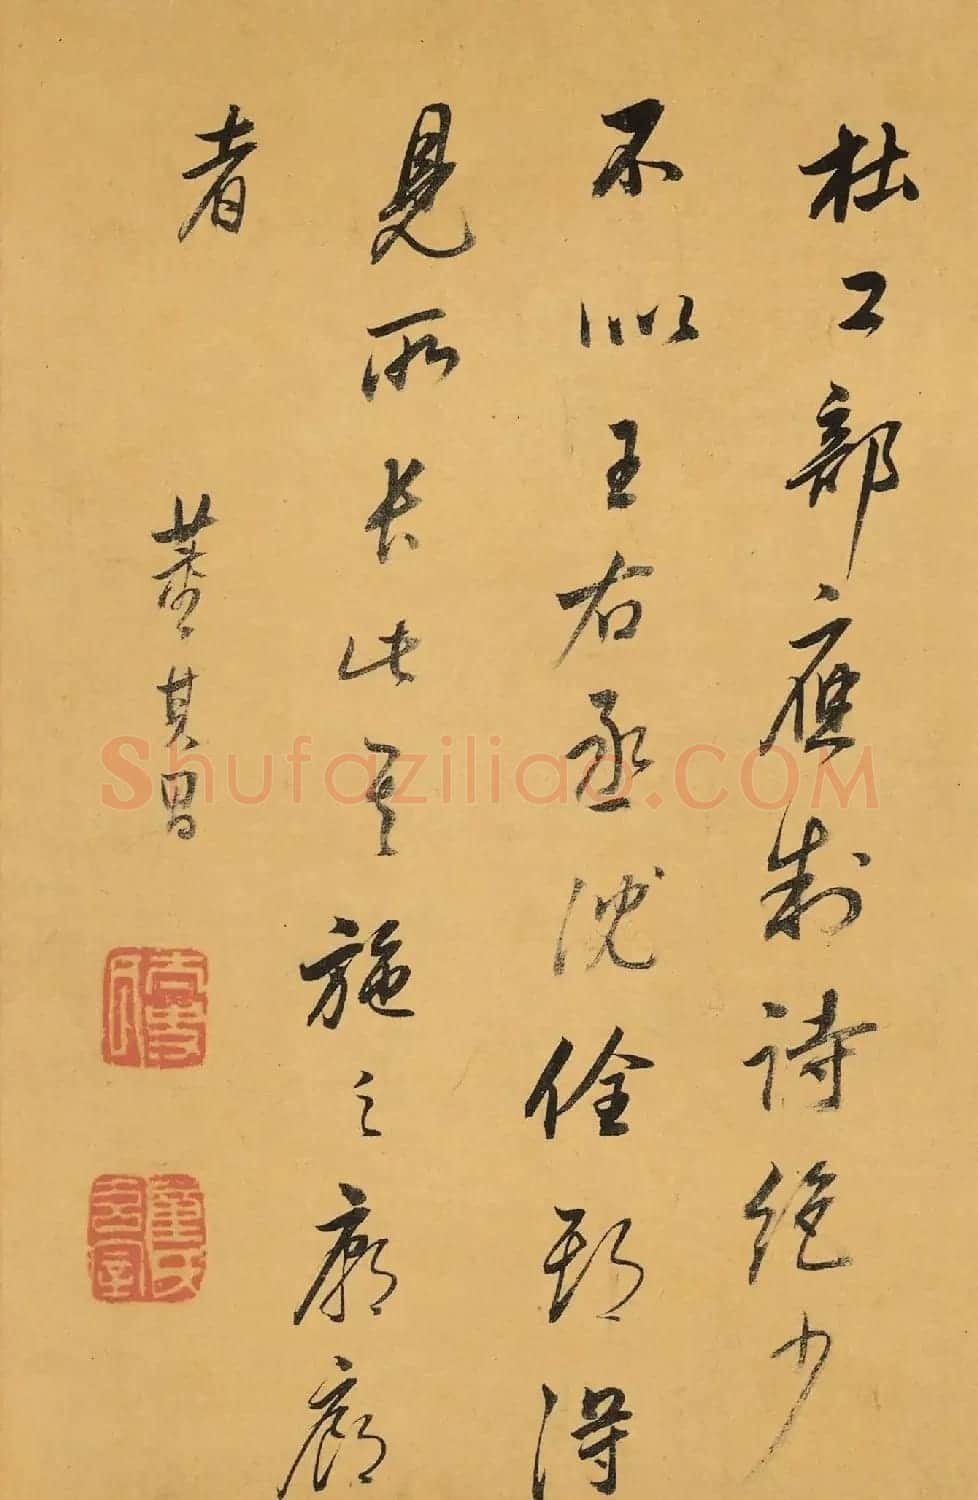 杜工部應制詩絕少
不似王右丞沈佺期得
見所長此其施之廊廟
者
董其昌
董氏
玄宰
Shufaziliao.COM